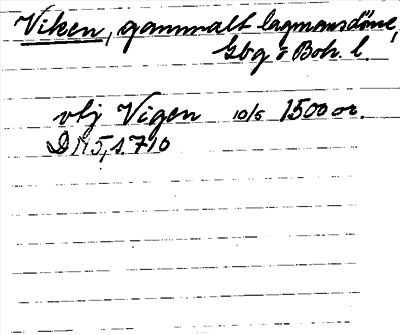 Viken, gammalt lagmansdöme,
Gbg o Boh. l.
vbj Vigen 10/5 1500 or.
DN 5, s. 710